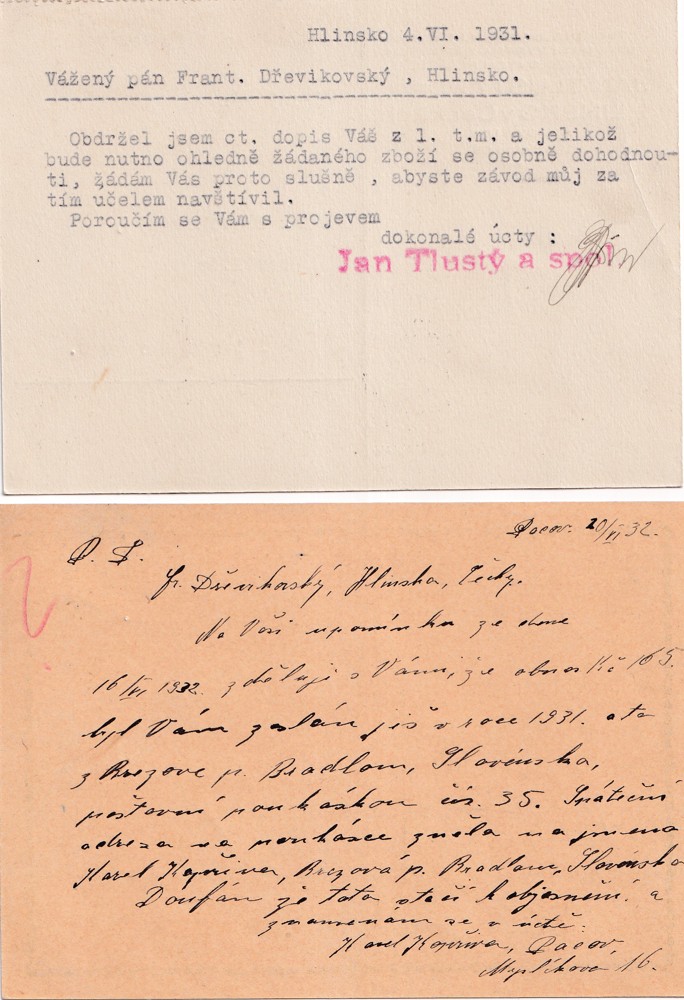 Hlinsko 4.VI. 1931.
Vážený pán Frant. Dřevikovský , Hlinsko.
Obdržel jsem ct. dopis Váš z l. t.m. a jelikož
bude nutno ohledně žádaného zboží se osobně dohodnou-
ti, žádám Vás proto slušně , abyste závod můj za
tím učelem navštívil.
Poroučím se Vám s projevem
dokonalé úcty :
Jan Tlustý a spol.
Pacov. 20/VI 32.
P. T.
Fr. Dřevikovský, Hlinsko, Čechy.
Na Vaši upomínku ze dne
16/VI 1932. zděluji s Vámi, že obnos Kč 165.
byl Vám zaslán již v roce 1931. a to
z Brezove p. Bradlom, Slovensko,
poštovní poukázkou čís. 35. Zpáteční
adresa na poukázce zněla na jmeno
Karel Kopřiva, Brezová p. Bradlom, Slovensko
Doufám že toto stačí k objasnění. a
znamenam se v úctě:
Karel Kopřiva, Pacov,
Myslíkova 16.